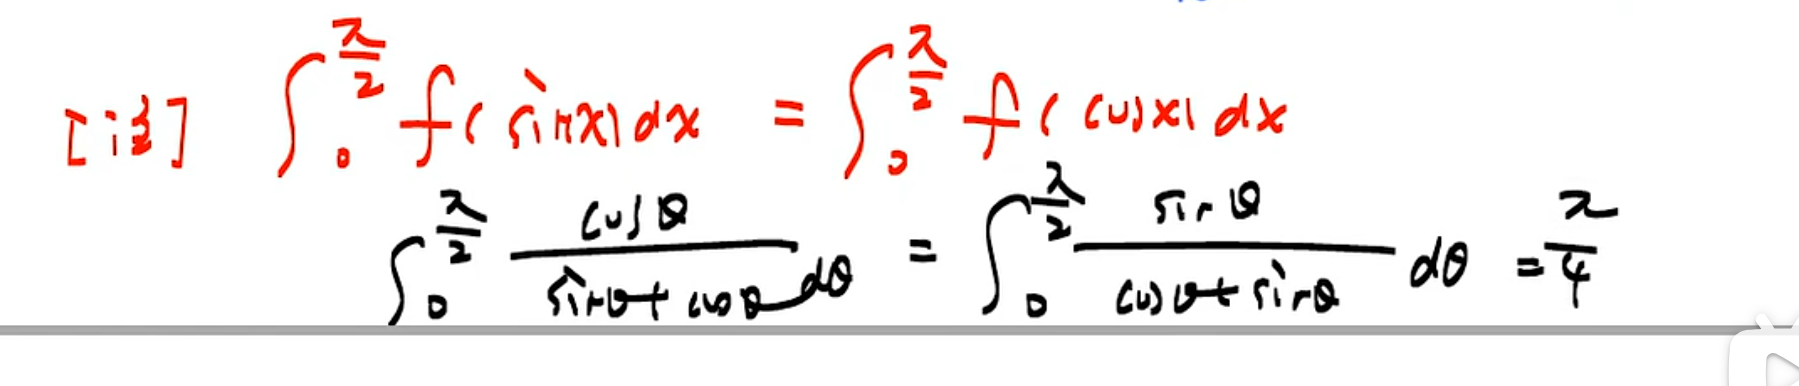 [注] ∫₀^{π/2} f(sinx)dx = ∫₀^{π/2} f(cosx)dx
∫₀^{π/2} cosθ/(sinθ+cosθ) dθ = ∫₀^{π/2} sinθ/(cosθ+sinθ) dθ = π/4